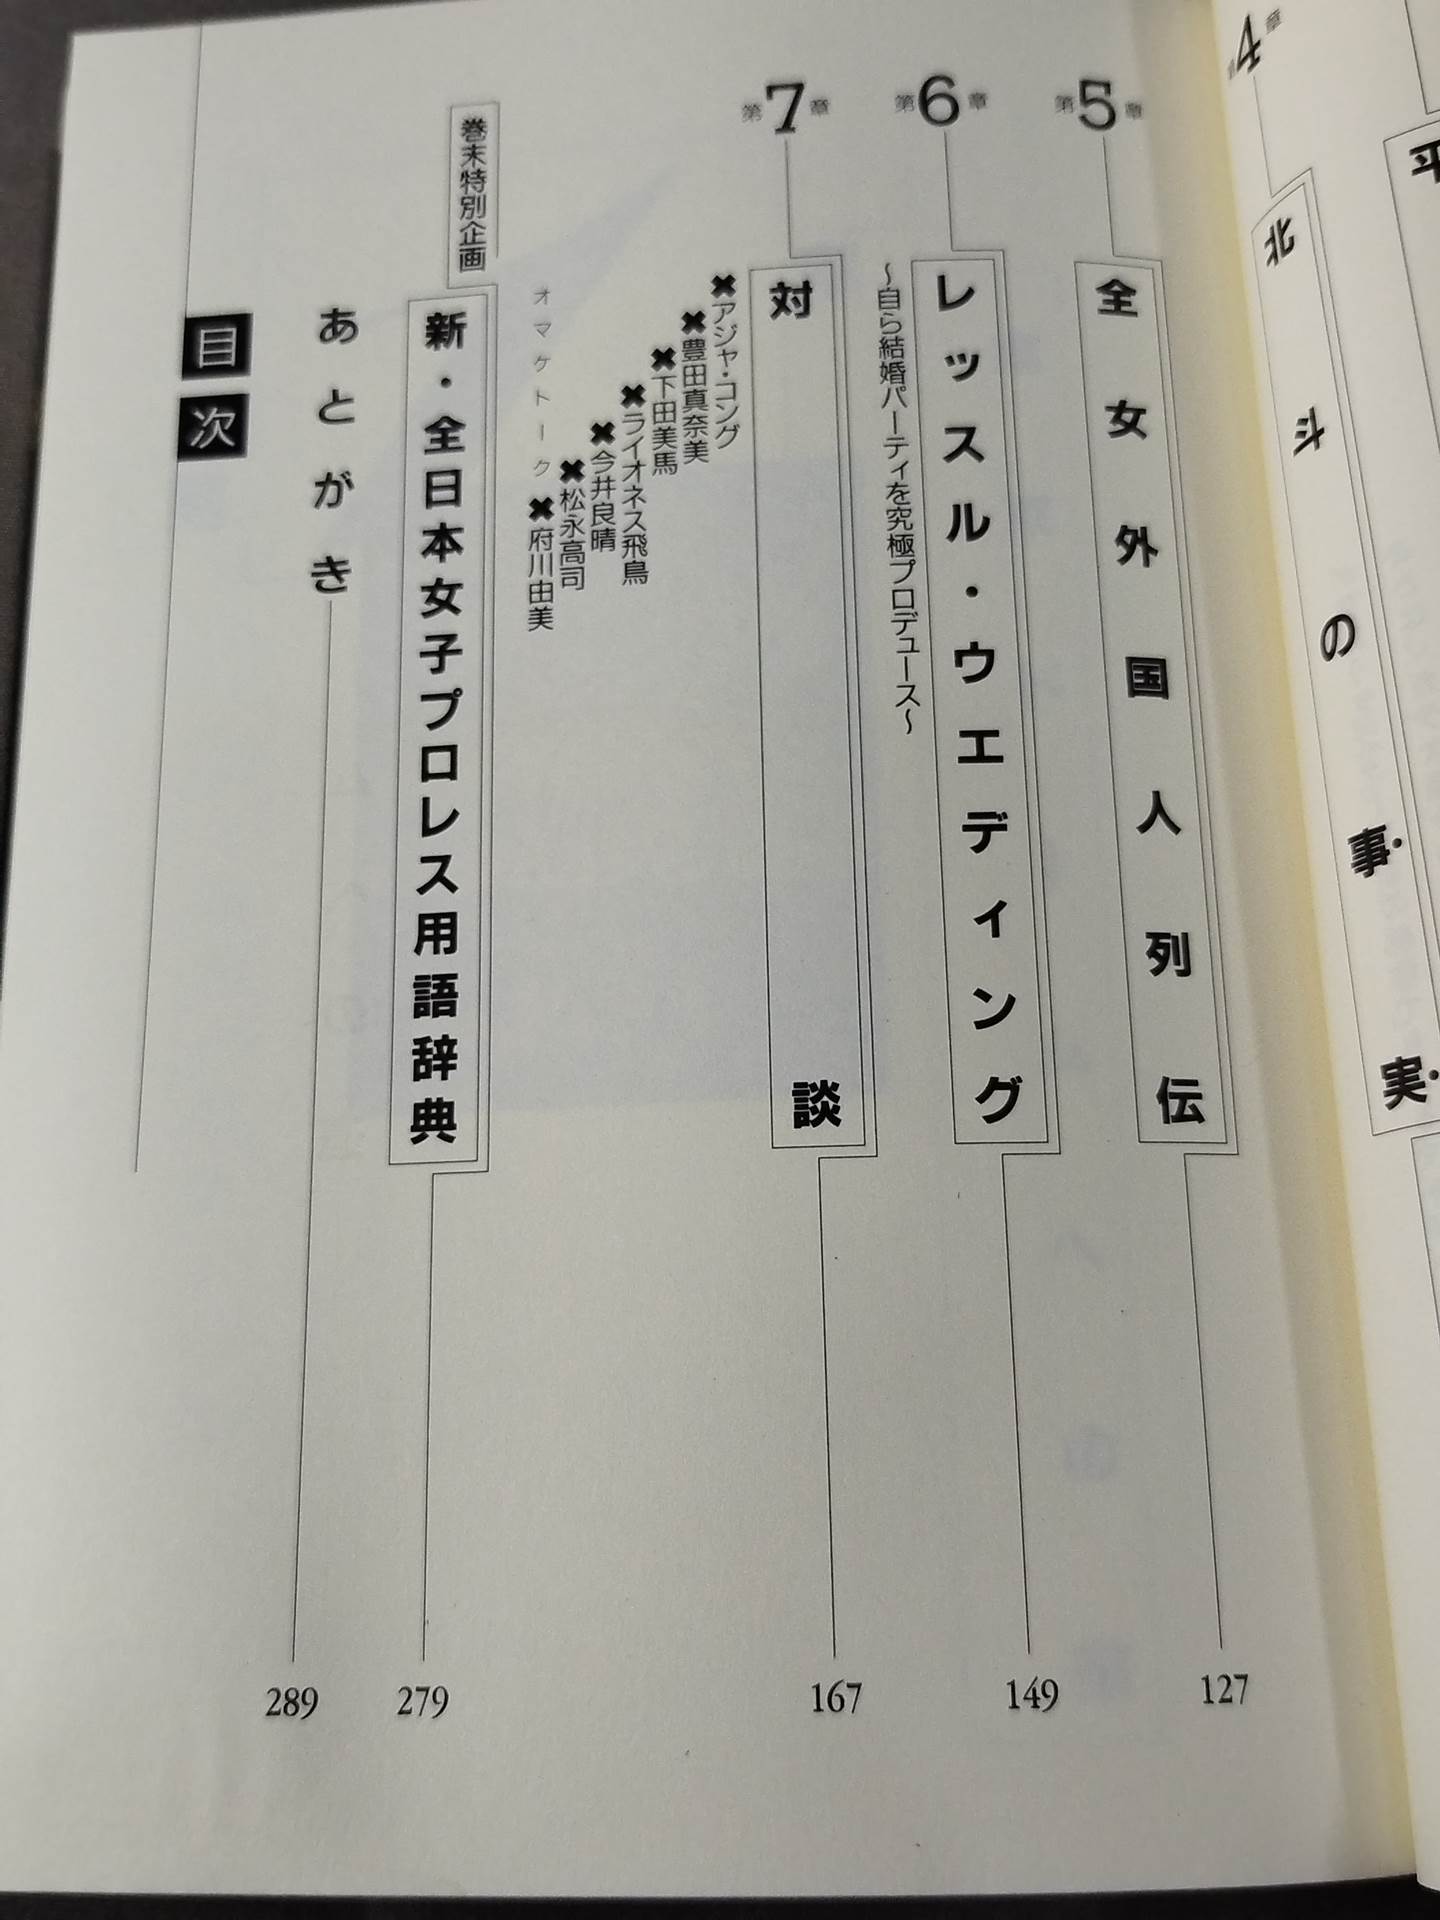 平
第4章
北斗の事実
第5章
全女外国人列伝
127
第6章
レッスル・ウエディング
149
〜自ら結婚パーティを究極プロデュース〜
第7章
対談
167
✖アジャ・コング
✖豊田真奈美
✖下田美馬
✖ライオネス飛鳥
✖今井良晴
✖松永高司
オマケトーク ✖府川由美
巻末特別企画
新・全日本女子プロレス用語辞典
279
あとがき
289
目次